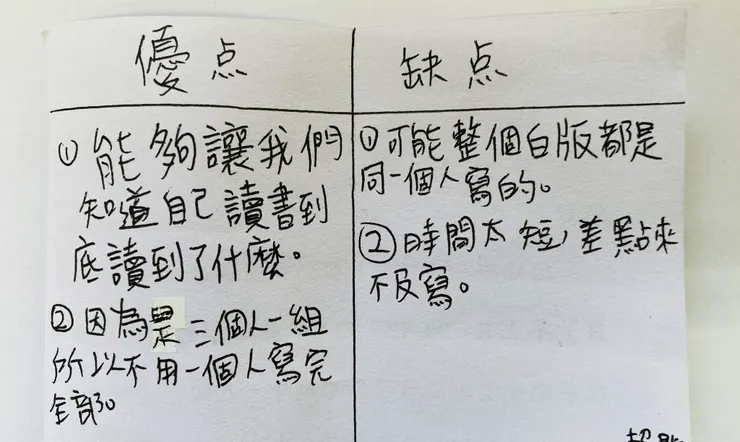 優点
① 能夠讓我們
知道自己讀書到
底讀到了什麼。
② 因為是三個人一組
所以不用一個人寫完
全部。
缺点
① 可能整個白版都是
同一個人寫的。
② 時間太短,差點來
不及寫。